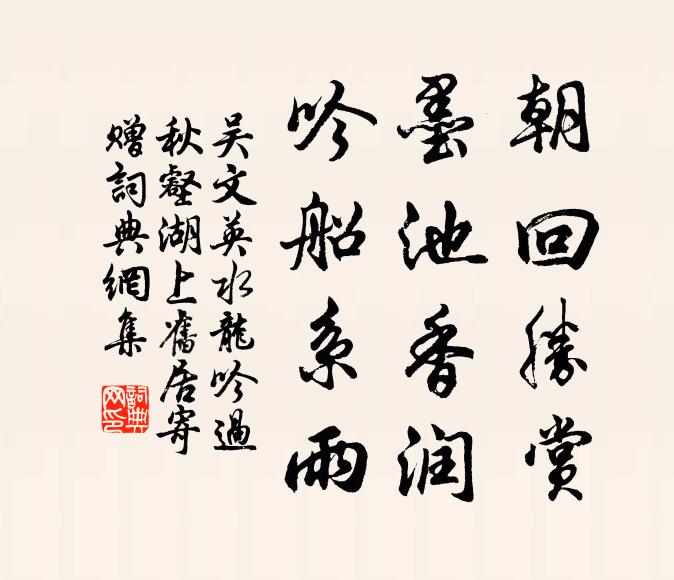 朝回勝賞
墨池香润
吟船系雨
吴文英水龍吟過
秋壑湖上舊居寄
赠詞典網集
詞典网印